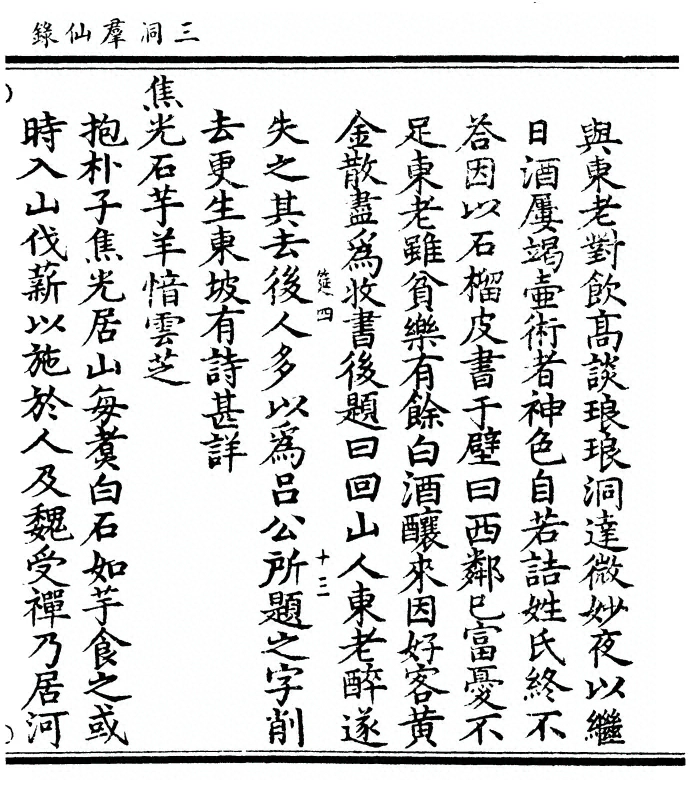 三洞羣仙錄
與東老對飲高談琅琅洞達微妙夜以繼
日酒屢竭壷術者神色自若詰姓氏終不
荅因以石榴皮書于壁曰西鄰已富憂不
足東老雖貧樂有餘白酒釀來因好客黄
金散盡爲收書後題曰回山人東老醉遂
筵四
十三
失之其去後人多以爲吕公所題之字削
去更生東坡有詩甚詳
焦光石芋羊愔雲芝
抱朴子焦光居山每煑白石如芋食之或
時入山伐薪以施於人及魏受禪乃居河